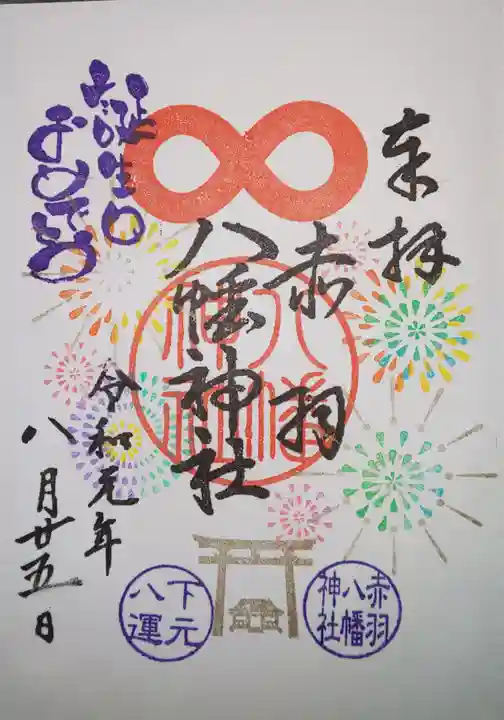 奉拝
赤羽
八幡神社
八幡
神社
誕生日
おめでとう
令和元年
八月廿五日
赤羽
八幡
神社
下元
八運